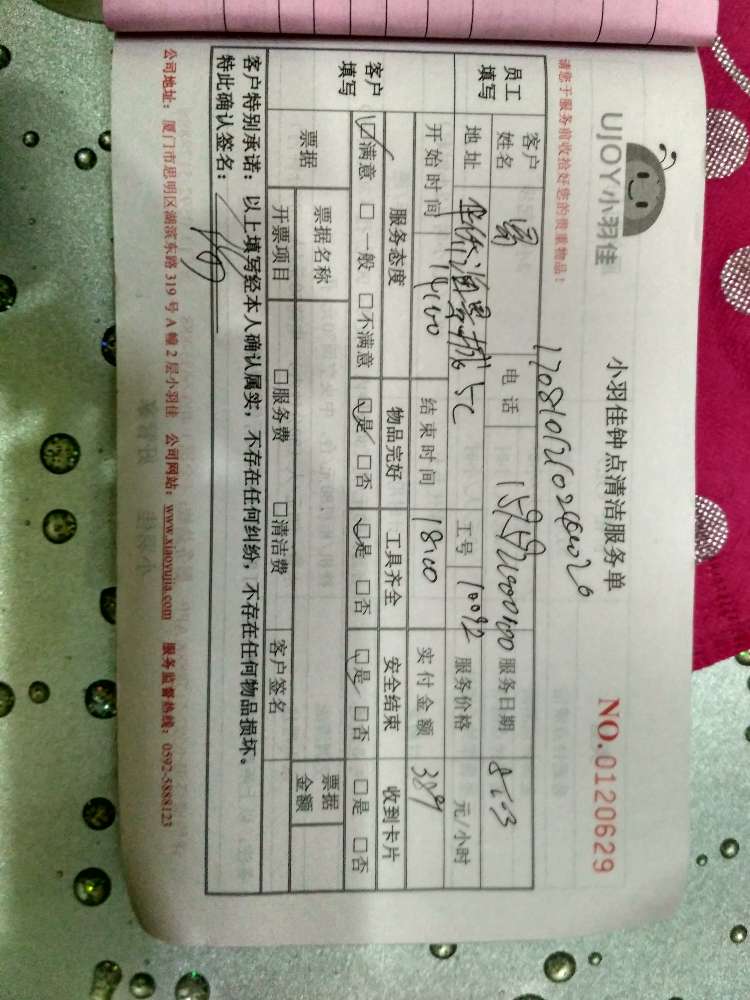 UJOY小羽佳
小羽佳钟点清洁服务单
NO.0120629
请您于服务前收拾好您的贵重物品！
员工填写
客户姓名 电话 服务日期 8-23
地址 工号 10092 服务价格 元/小时
开始时间 14:00 结束时间 18:00 实付金额
客户填写
服务态度 物品完好 工具齐全 安全结束 收到卡片
☑满意 □一般 □不满意 ☑是 □否 ☑是 □否 ☑是 □否 □是 □否
票据 票据名称 票据金额
开票项目 □服务费 □清洁费 客户签名
客户特别承诺：以上填写经本人确认属实，不存在任何纠纷，不存在任何物品损坏。
特此确认签名：
公司地址：厦门市思明区湖滨东路319号A幢2层小羽佳 公司网站：www.xiaoyujia.com 服务监督热线：0592-5888123